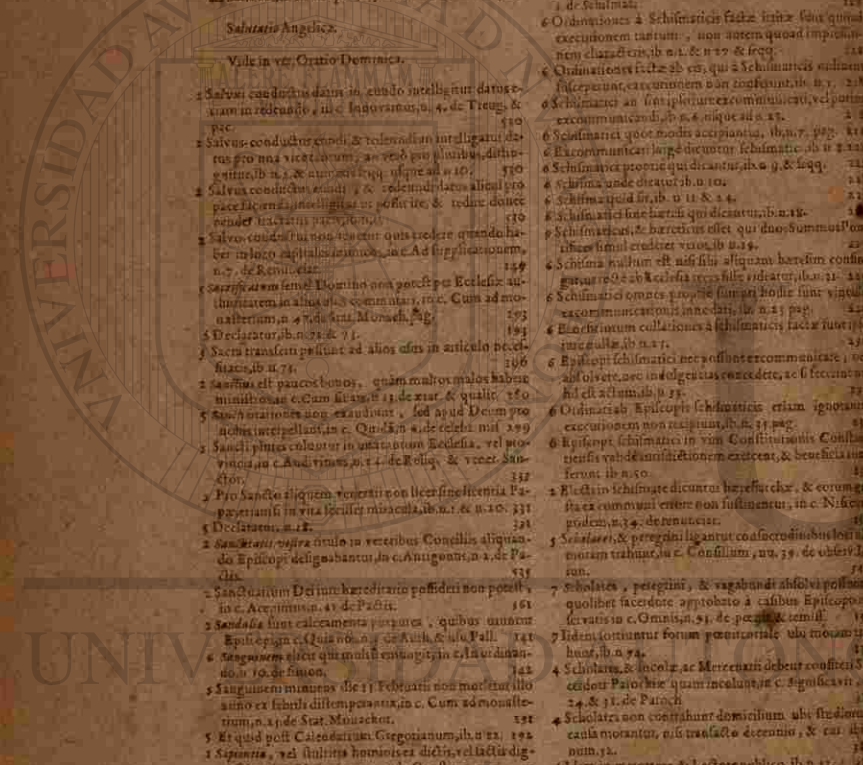 Salutatio Angelica.
Vide in ver. Oratio Dominica.
2 Salvus conductus datus in eundo intelligitur datus e-
tiam in redeundo, in c. Innovamus, n. 4. de Treug. &
pac. 530
2 Salvus conductus eundi, & redeundi an intelligatur da-
tus pro una vice tantum, an verò pro pluribus, distin-
guitur, ib. n. 5. & num. seqq. usque ad n. 10. 530
2 Salvus conductus eundi, & redeundi datus alicui pro
pace facienda, intelligitur ut possit ire, & redire donec
pendet tractatus pacis, ib. n. 530
2 Salvo conductui non tenetur quis credere quando ha-
bet in loco capitales inimicos, in c. Ad supplicationem,
n. 7. de Renunciat. 149
5 Sacrificatum semel Domino non potest per Ecclesiæ au-
thoritatem in alios usus commutari, in c. Cum ad mo-
nasterium, n. 47. de Stat. Monach. pag. 193
5 Declaratur, ib. n. 71. & 73. 193
5 Sacra transferri possunt ad alios usus in articulo neces-
sitatis, ib. n. 73. 196
2 Sanctius est paucos bonos, quàm multos malos habere
ministros, in c. Cum sit ars, n. 13. de ætat. & qualit. 260
5 Sanctorationes non exaudiuntur, sed apud Deum pro
nobis interpellant, in c. Quidā, n. 4. de celebr. miss. 299
3 Sancti plures coluntur in una tantum Ecclesia, vel pro-
vincia, in c. Audivimus, n. 14. de Reliq. & vener. San-
ctor. 332
2 Pro Sancto aliquem venerari non licet sine licentia Pa-
pæ, etiamsi in vita fecisset miracula, ib. n. 1. & n. 10. 331
5 Declaratur, n. 18. 331
2 Sanctitatis vestræ titulo in veteribus Conciliis aliquan-
do Episcopi designabantur, in c. Antigonus, n. 2. de Pa-
ctis. 535
2 Sanctuarium Dei iure hæreditario possideri non potest,
in c. Accepimus, n. 41. de Pactis. 561
2 Sandalia sunt calceamenta purpurea, quibus utuntur
Episcopi, in c. Quia nos, n. 5. de Auth. & usu Pall. 141
6 Sanguinem elicit qui multū emungit, in c. In ordinan-
do, n. 10. de simon. 142
5 Sanguinem minuens die 11 Februarii non morietur illo
anno ex febrili distemperantia, in c. Cum ad monaste-
rium, n. 21. de Stat. Monachor. 191
5 Et quid post Calendarium Gregorianum, ib. n. 22. 192
1 Sapientia, vel stultitia hominis ex dictis, vel factis dig-
i. de Schismat.
6 Ordinationes à Schismaticis factæ irritæ sunt quoad
executionem tantum, non autem quoad impressio-
nem characteris, ib. n. 1. & n. 27. & seqq.
6 Ordinationes factæ ab eis, qui à Schismaticis ordinem
susceperunt, executionem non conferunt, ib. n. 3.
6 Schismatici an sint ipso iure excommunicati, vel potius
excommunicandi, ib. n. 6. usque ad n. 23.
6 Schismatici quot modis accipiantur, ib. n. 7. pag.
6 Excommunicati largè dicuntur schismatici, ib. n. 8.
6 Schismatici propriè qui dicantur, ib. n. 9. & seqq.
6 Schisma unde dicatur, ib. n. 10.
6 Schisma quid sit, ib. n. 11. & 14.
6 Schismatici sine hæresi qui dicantur, ib. n. 18.
6 Schismaticus, & hæreticus esset qui duos Summos Pon-
tifices simul crederet veros, ib. n. 19.
6 Schisma nullum est nisi sibi aliquam hæresim confin-
gat, ut rectè ab Ecclesia recessisse videatur, ib. n. 21.
6 Schismatici omnes propriè sumpti hodie sunt vinculo
excommunicationis innodati, ib. n. 23. pag.
6 Beneficiorum collationes à schismaticis factæ sunt ipso
iure nullæ, ib. n. 25.
6 Episcopi schismatici nec possunt excommunicare,
absolvere, nec indulgentias concedere, ac si fecerint
hil est actum, ib. n. 33.
6 Ordinati ab Episcopis schismaticis etiam ignoranter
executionem non recipiunt, ib. n. 35. pag.
6 Episcopi schismatici in vim Constitutionis Constan-
tiensis validè iurisdictionem exercent, & beneficia con-
ferunt. ib. n. 50.
2 Electi in schismate dicuntur hæresiarchæ, & eorum ge-
sta ex communi errore non sustinentur, in c. Nisi cum
pridem, n. 34. de renunciat.
5 Scholares, & peregrini ligantur consuetudinibus loci
moram trahunt, in c. Consilium, nu. 39. de observ. Ie-
iun.
7 Scholares, peregrini, & vagabundi absolvi possunt
quolibet sacerdote approbato à casibus Episcopo
servatis in c. Omnis, n. 93. de pœnit. & remiss.
7 Iidem sortiuntur forum pœnitentiale ubi moram tra-
hunt, ib. n. 94.
4 Scholares, & incolæ, ac Mercenarii debent confiteri Sa-
cerdoti Parochiæ quam incolunt, in c. Significavit,
24. & 31. de Paroch.
4 Scholares non contrahunt domicilium ubi studiorum
causa morantur, nisi transacto decennio, & cur ib.
num. 32.